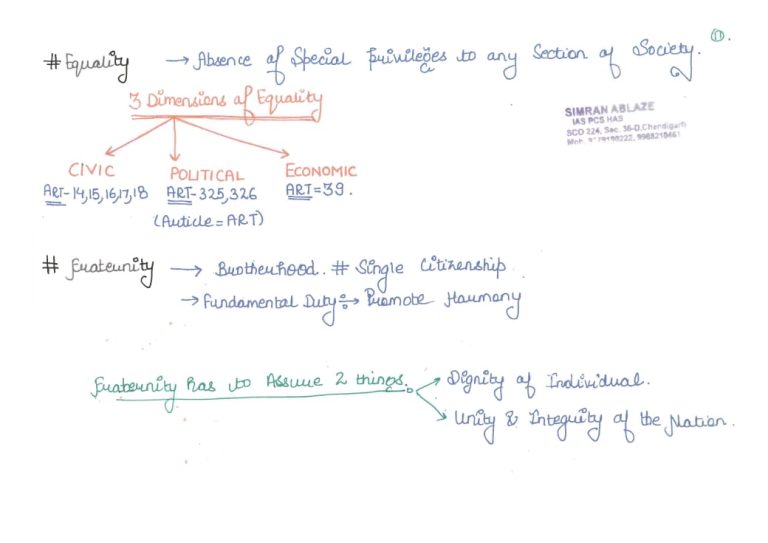 ①.
# Equality → Absence of Special Privileges to any Section of Society.
3 Dimensions of Equality
SIMRAN ABLAZE
IAS PCS HAS
SCO 224, Sec. 36-D, Chandigarh
CIVIC POLITICAL ECONOMIC
ART-14,15,16,17,18 ART-325,326 ART=39.
(Article=ART)
# Fraternity → Brotherhood. # Single Citizenship
→ Fundamental Duty:→ Promote Harmony
Fraternity has to Assure 2 things. → Dignity of Individual.
→ Unity & Integrity of the Nation.